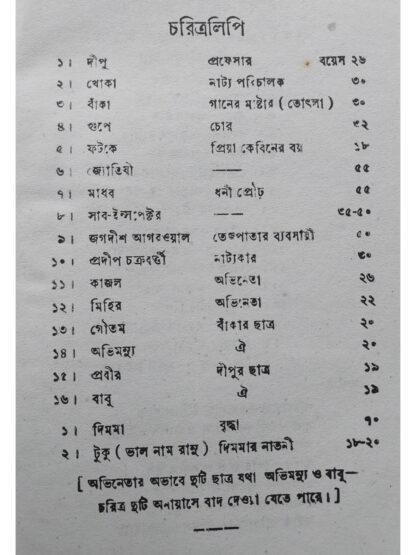 চরিত্রলিপি
১। দীপু প্রফেসার বয়েস ২৬
২। খোকা নাট্য পরিচালক ৩০
৩। বাঁকা গানের মাষ্টার (তোৎলা) ৩০
৪। গুপে চোর ৩২
৫। ফট্‌কে প্রিয়া কেবিনের বয় ১৮
৬। জ্যোতিষী —— ৫৫
৭। মাধব ধনী প্রৌঢ় ৫৫
৮। সাব-ইন্সপেক্টর —— ৩৫-৫০
৯। জগদীশ আগরওয়াল তেজপাতার ব্যবসায়ী ৫০
১০। প্রদীপ চক্রবর্ত্তী নাট্যকার ৩০
১১। কাজল অভিনেতা ২৬
১২। মিহির অভিনেতা ২২
১৩। গৌতম বাঁকার ছাত্র ২০
১৪। অভিমন্যু ঐ ২০
১৫। প্রবীর দীপুর ছাত্র ১৯
১৬। বাবু ঐ ১৯
১। দিম্মা বৃদ্ধা ৭০
২। টুকু (ভাল নাম রামু) দিম্মার নাতনী ১৮-২০
[ অভিনেতার অভাবে দুটি ছাত্র যথা অভিমন্যু ও বাবু—
চরিত্র দুটি অনায়াসে বাদ দেওয়া যেতে পারে। ]